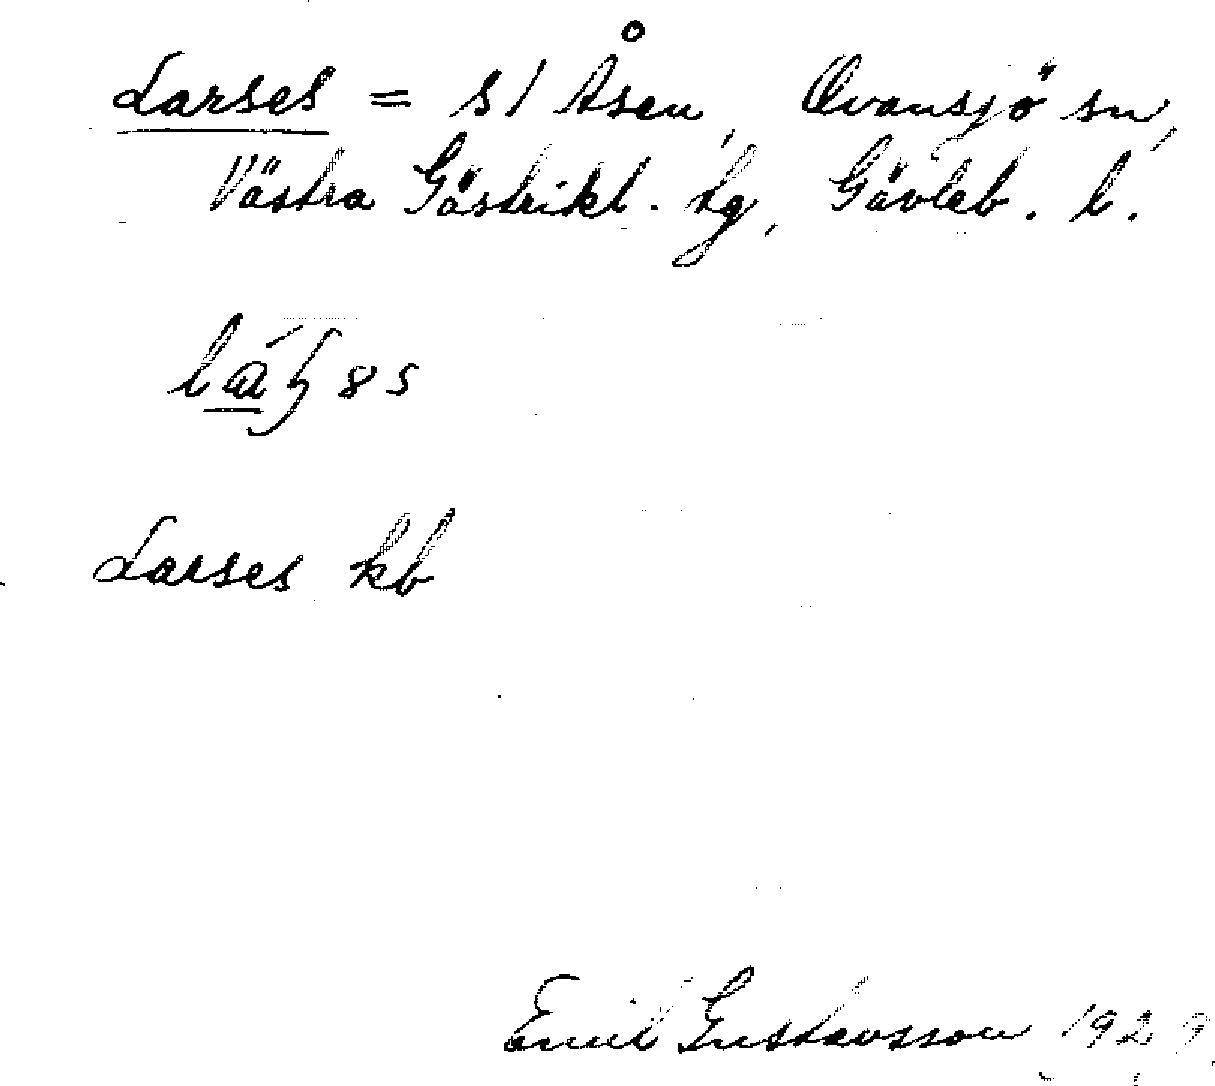 Larses = s/ Åsen, Ovansjö sn,
Västra Gästrikl. tg, Gävleb. l.
Larses kb
Emil Gustavsson 1929